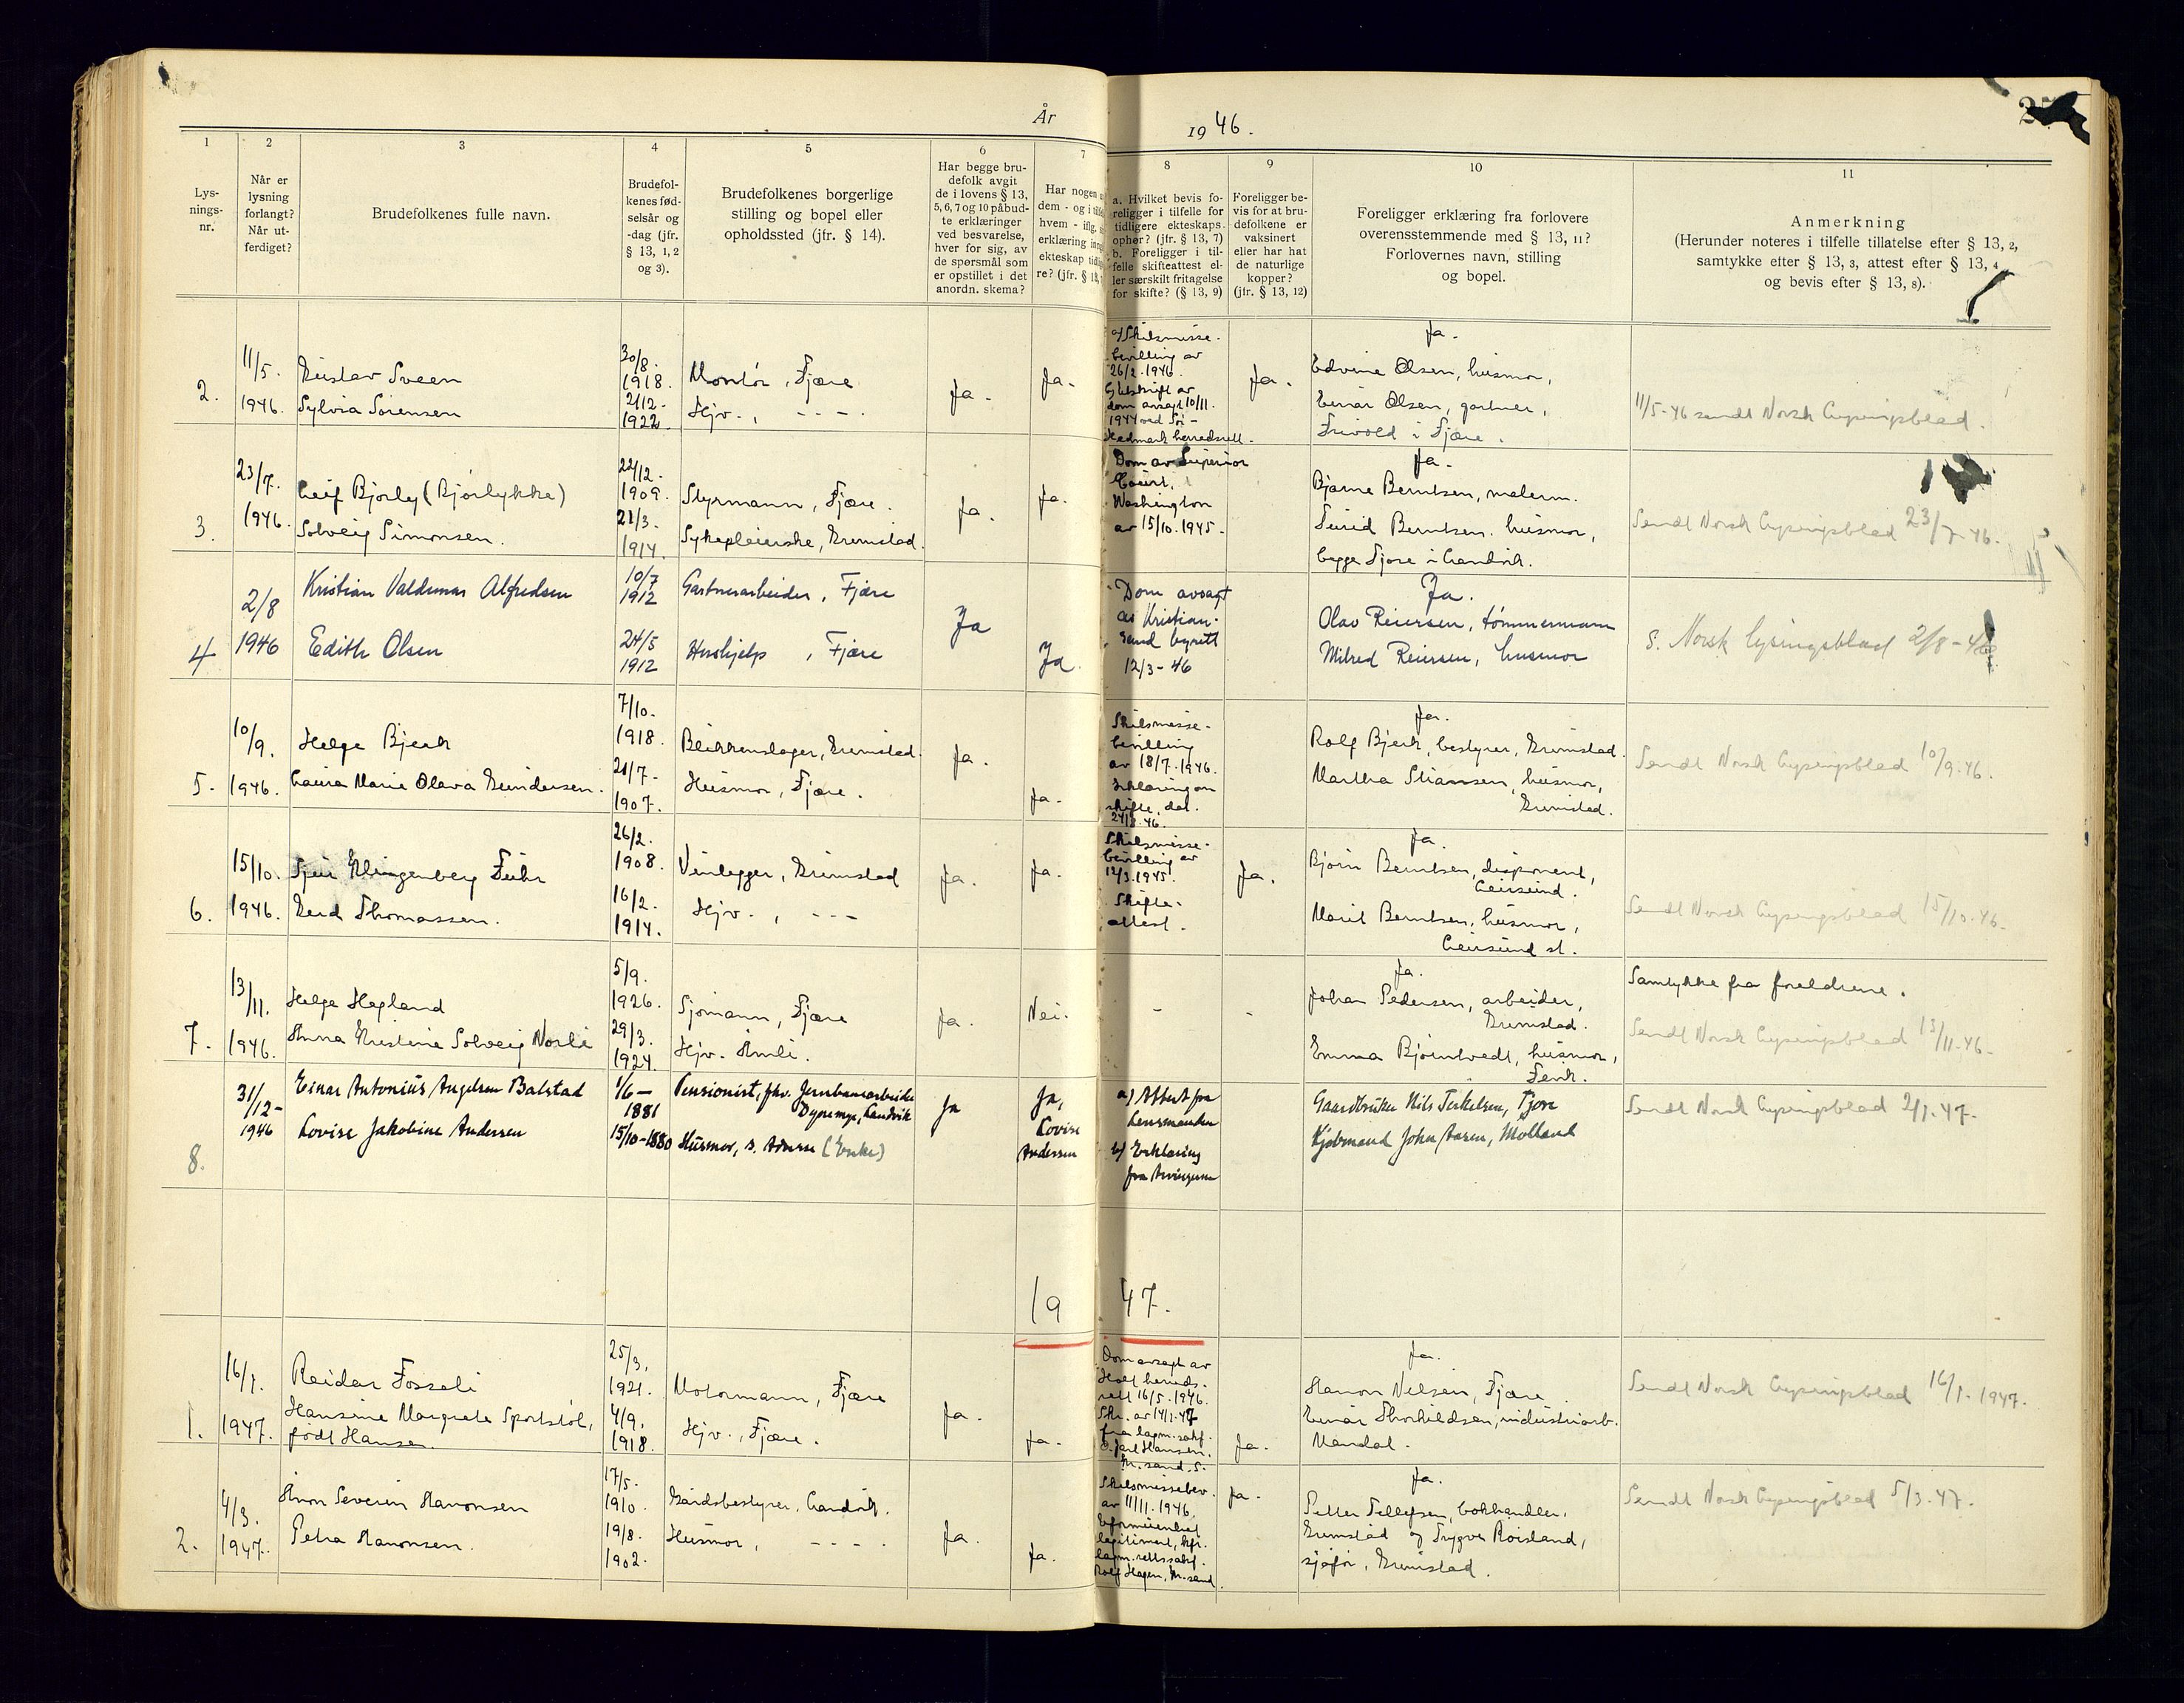 År
1946.
1
2
3
4
5
6
7
8
9
10
11
Lys-
nings-
nr.
Når er
lysning
forlangt?
Når ut-
ferdiget?
Brudefolkenes fulle navn.
Brudefol-
kenes fød-
selsår og
-dag (jfr.
§ 13, 1, 2
og 3).
Brudefolkenes borgerlige
stilling og bopel eller
opholdssted (jfr. § 14).
Har begge bru-
defolk avgit
de i lovens § 13,
5, 6, 7 og 10 påbud-
te erklæringer
ved besvarelse,
hver for sig, av
de spørsmål som
er opstillet i det
anordn. skema?
Har nogen
dem - og i
hvem - iflg.
erklæring
ekteskap
re? (jfr. § 13,
a. Hvilket bevis fo-
religger i tilfelle for
tidligere ekteskaps
ophør? (jfr. § 13, 7)
b. Foreligger i til-
felle skifteattest el-
ler særskilt fritagelse
for skifte? (§ 13, 9)
Foreligger be-
vis for at bru-
defolkene er
vaksinert
eller har hat
de naturlige
kopper?
(jfr. § 13, 12)
Foreligger erklæring fra forlovere
overensstemmende med § 13, 11?
Forlovernes navn, stilling
og bopel.
Anmerkning
(Herunder noteres i tilfelle tillatelse efter § 13, 2,
samtykke efter § 13, 3, attest efter § 13, 4
og bevis efter § 13, 8).
2.
11/5.
1946.
Gustav Sveen
Sylvia Sørensen
30/8.
1918.
21/2-
1922.
Montør, Fjære
Hjv., - - -.
Ja.
Ja.
a) Skilsmisse-
bevilling av
26/2.1946.
Utskrift av
dom avsagt 10/11.
1944 ved Sør-
Hedmark herredsrett.
Ja.
Ja.
Edvine Olsen, husmor,
Einar Olsen, gartner,
Frivold i Fjære.
11/5-46 sendt Norsk Lysingsblad.
3.
23/7.
1946.
Leif Bjørly (Bjørlykke)
Solveig Simonsen.
22/12.
1909.
21/3.
1914.
Styrmann, Fjære.
Sykepleierske, Grimstad.
Ja.
Ja.
Dom av Superior
Court,
Washington
av 15/10.1945.
Ja.
Bjarne Berntsen, malerm.
Turid Berntsen. husmor,
begge Tjore i Landvik.
Sendt Norsk Lysingsblad 23/7-46.
4
2/8
1946
Kristian Valdemar Alfredsen
Edith Olsen
10/7
1912
24/5
1912
Gartnerarbeider, Fjære
Hushjelp, Fjære
Ja
Ja
Dom avsagt
av Kristian-
sand byrett
12/3-46
Ja.
Olav Reiersen, tømmermann
Milred Reiersen, husmor
S. Norsk lysingsblad 2/8-46
5.
10/9.
1946.
Helge Bjerk
Laura Marie Olava Gundersen.
7/10.
1918.
21/7-
1907.
Blikkenslager, Grimstad.
Husmor, Fjære.
Ja.
Ja.
Skilsmisse-
bevilling
av 18/7.1946.
Erklæring om
skifte, dat.
24/8.46.
Ja.
Rolf Bjerk, bestyrer, Grimstad.
Martha Stiansen, husmor,
Grimstad.
Sendt Norsk Lysingsblad 10/9.46.
6.
15/10.
1946.
Klingenberg Fuhr
Gerd Thomassen.
26/2.
1908.
16/2.
1914.
Vinlegger, Grimstad
Hjv., - - -
Ja.
Ja.
Skilsmisse-
bevilling av
12/3.1945.
Skifte-
attest.
Ja.
Ja.
Bjørn Berntsen, disponent,
Geirsund.
Marit Berntsen, husmor,
Geirsund st.
Sendt Norsk Lysingsblad 15/10.46.
7.
13/11.
1946.
Helge Hegland
Anna Kristine Solveig Norli
5/9.
1926.
29/3.
1924.
Sjømann, Fjære
Hjv. Åmli.
Ja.
Nei.
-
-
Ja.
Johan Pedersen, arbeider,
Grimstad.
Emma Bjorntvedt, husmor,
Fevik.
Samtykke fra foreldrene.
Sendt Norsk Lysingsblad 13/11.46.
8.
31/12-
1946
Einar Antonius Angelsen Balstad
Lovise Jakobine Andersen
1/6-
1881
15/10-1880
Pensionist, fhv. Jernbanearbeider
Dypemyr, Landvik
Husmor, s. Adresse (Enke)
Ja
Ja,
Lovise
Andersen
a) Attest fra
Lensmanden
b) Erklæring
fra Arvingerne
Gaardbruker Nils Terkelsen, Tjore
Kjøbmand John Aasen, Molland
Sendt Norsk Lysingsblad 2/1.47.
1947.
1.
16/1.
1947.
Reidar Fosseli
Hansine Margrete Sportstøl,
født Hansen.
25/3.
1921.
4/9.
1918.
Motormann, Fjære
Hjv., Fjære.
Ja.
Ja.
Dom avsagt av
Holt herreds-
rett 16/5.1946.
Skr. av 14/1.47
fra lagm. sakf.
C. Jarl Hansen.
Kr.sand. S.
Ja.
Ja.
Hanon Nilsen, Fjære
Einar Thorkildsen, industriarb.
Mandal.
Sendt Norsk Lysingsblad 16/1.1947.
2.
4/3.
1947.
Anon Severin Hanonsen
Petra Hanonsen.
17/5.
1910.
19/8.
1902.
Gårdsbestyrer, Landvik.
Husmor, - - - -.
Ja.
Ja.
Skilsmissebev.
av 11/11.1946.
legitimert, hfr.
lagm. rettssakf.
Rolf Hagen, Kr.sand.
Ja.
Ja.
Petter Tellefsen, bokhandler,
Grimstad og Trygve Roisland,
sjåfør, Grimstad.
Sendt Norsk Lysingsblad 5/3.47.